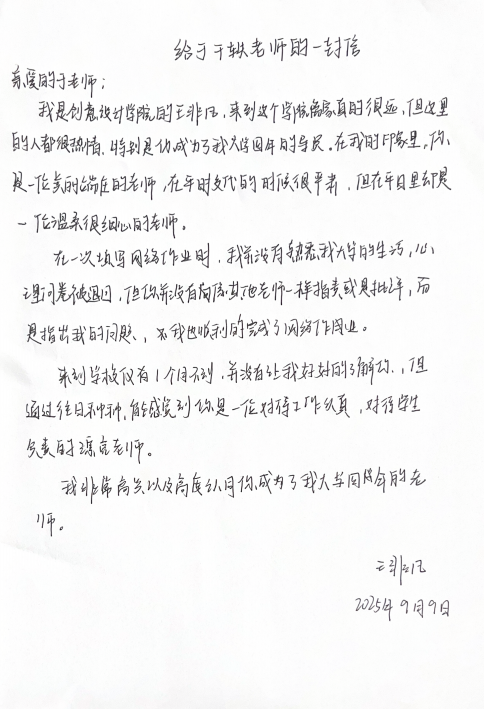 给于干轶老师的一封信
亲爱的于老师；
我是创意设计学院的王非凡，来到这个学院离家真的很远，但这里
的人都很热情，特别是你成为了我大学四年的导员。在我的印象里，你
是一位美的端庄的老师，在平时交代的时候很严肃，但在平日里却是
一位温柔很细心的老师。
在一次填写网络作业时，我并没有熟悉我大学的生活，心
理问卷被退回，但你并没有向其他老师一样指责或是批评，而
是指出我的问题、，我也顺利的完成了网络作业。
来到学校仅有1个月不到，并没有让我好好的了解你，但
通过往日种种，能感觉到你是一位对待工作认真，对待学生
负责的漂亮老师。
我非常高兴以及高度认同你成为了我大学四年的老
师。
王非凡
2025年9月9日